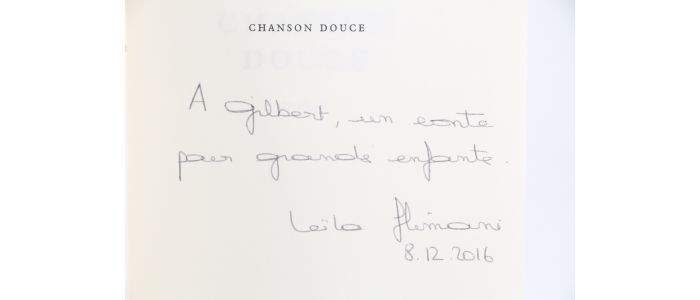 CHANSON DOUCE
A Gilbert, un conte
pour grands enfants.
Leïla Slimani
8.12.2016